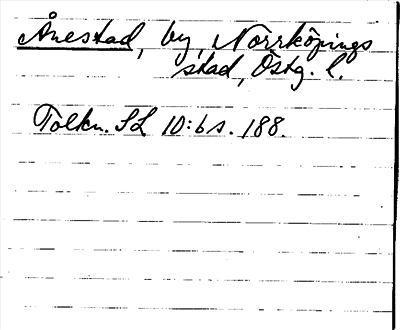 Ånestad, by, Norrköpings
stad, Östg. l.
Tolkn. SL 10:6 s. 188.